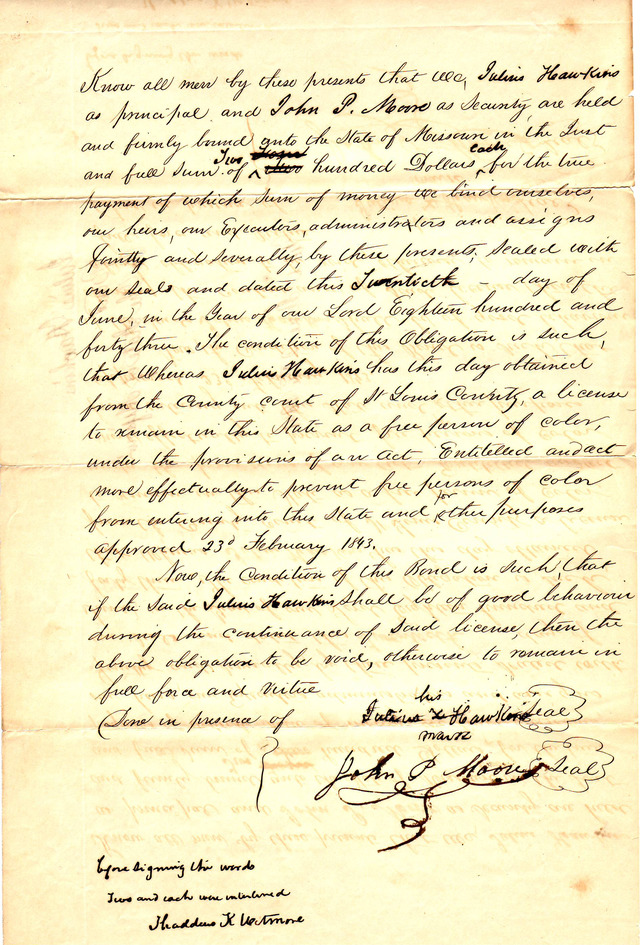 Know all men by these presents that We, Julius Hawkins
as principal and John P. Moore as Security, are held
and firmly bound unto the State of Missouri in the Just
and full sum of Two hundred Dollars each for the true
payment of which sum of money we bind ourselves,
our heirs, our Executors, administrators and assigns
Jointly and severally, by these presents, sealed with
our seals and dated this Twentieth - day of
June, in the Year of our Lord Eighteen hundred and
forty three. The condition of this Obligation is such,
that Whereas Julius Hawkins has this day obtained
from the County court of St Louis County, a license
to remain in this State as a free person of color,
under the provisions of an Act, Entitelled and act
more effectually to prevent free persons of color
from entering into this State and for other purposes
approved 23d February 1843.
Now, the Condition of this Bond is such, that
if the said Julius Hawkins Shall be of good behaviour
during the continuance of said license, then the
above obligation to be void, otherwise to remain in
full force and virtue
Done in presence of
his
Julius x Hawkins Seal
mark
John P Moore Seal
before signing the words
Two and each were interlined
Thaddeus K Wetmore